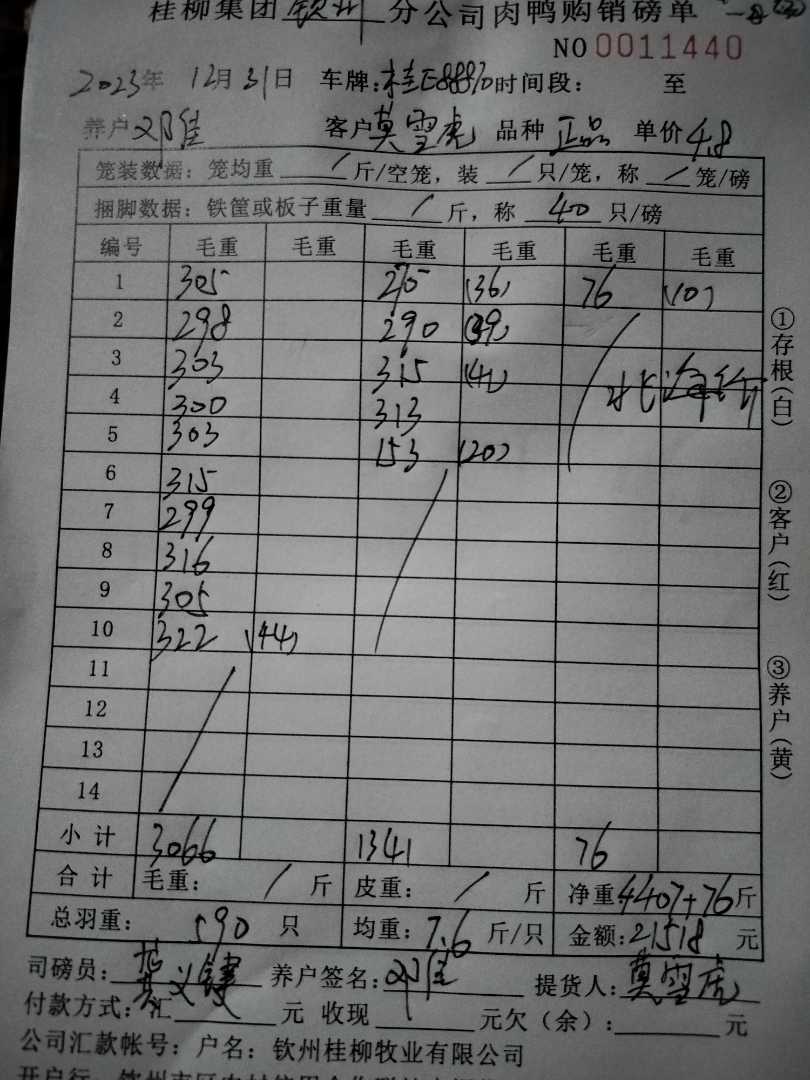 桂柳集团 钦州 分公司肉鸭购销磅单
NO 0011440
2023年 12月31日 车牌: 时间段: 至
养户 邓佳 客户 莫雪虎 品种 正品 单价 4.8
笼装数据: 笼均重 / 斤/空笼, 装 / 只/笼, 称 / 笼/磅
捆脚数据: 铁筐或板子重量 / 斤, 称 40 只/磅
编号 毛重 毛重 毛重 毛重 毛重 毛重
1 305 270 (36) 76 (10)
2 298 290 (39)
3 303 315 (41)
4 300 313
5 303 153 (20)
6 315
7 299
8 316
9 305
10 322 (44)
11
12
13
14
小计 3066 1341 76
合计 毛重: / 斤 皮重: / 斤 净重 4407+76 斤
总羽重: 590 只 均重: 7.6 斤/只 金额: 21518 元
司磅员: 养户签名: 邓佳 提货人: 莫雪虎
付款方式: 汇 元 收现 元欠(余): 元
公司汇款帐号: 户名: 钦州桂柳牧业有限公司
①存根(白)
②客户(红)
③养户(黄)